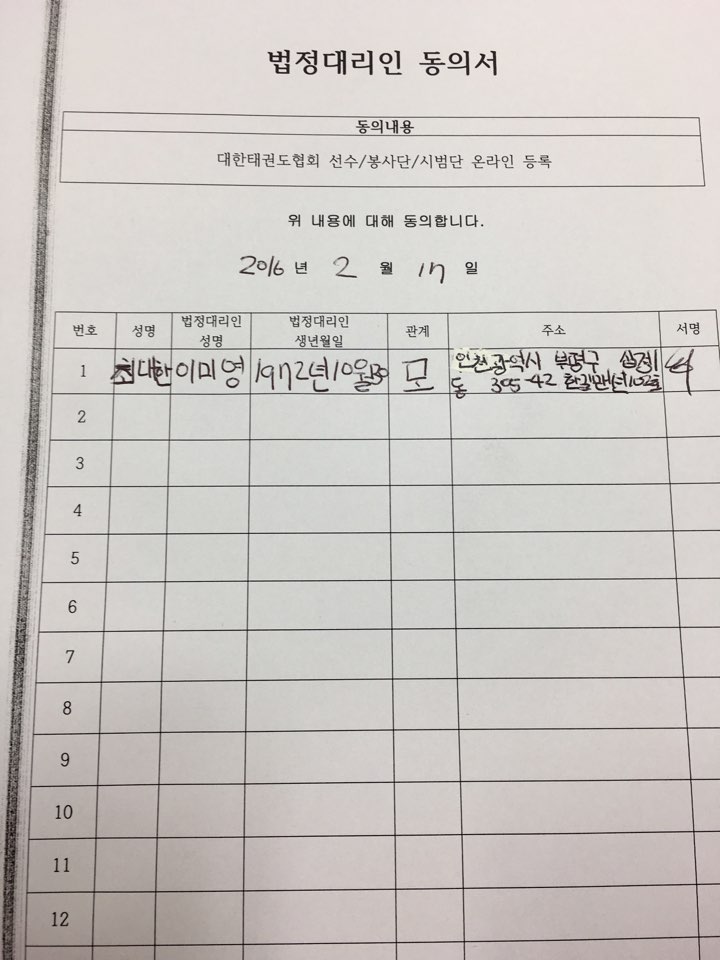 법정대리인 동의서
동의내용
대한태권도협회 선수/봉사단/시범단 온라인 등록
위 내용에 대해 동의합니다.
2016 년 2 월 17 일
번호 성명 법정대리인 성명 법정대리인 생년월일 관계 주소 서명
1 최대한 이미영 1972년10월30 모 인천광역시 부평구 삼
동 395-42 102호
2
3
4
5
6
7
8
9
10
11
12